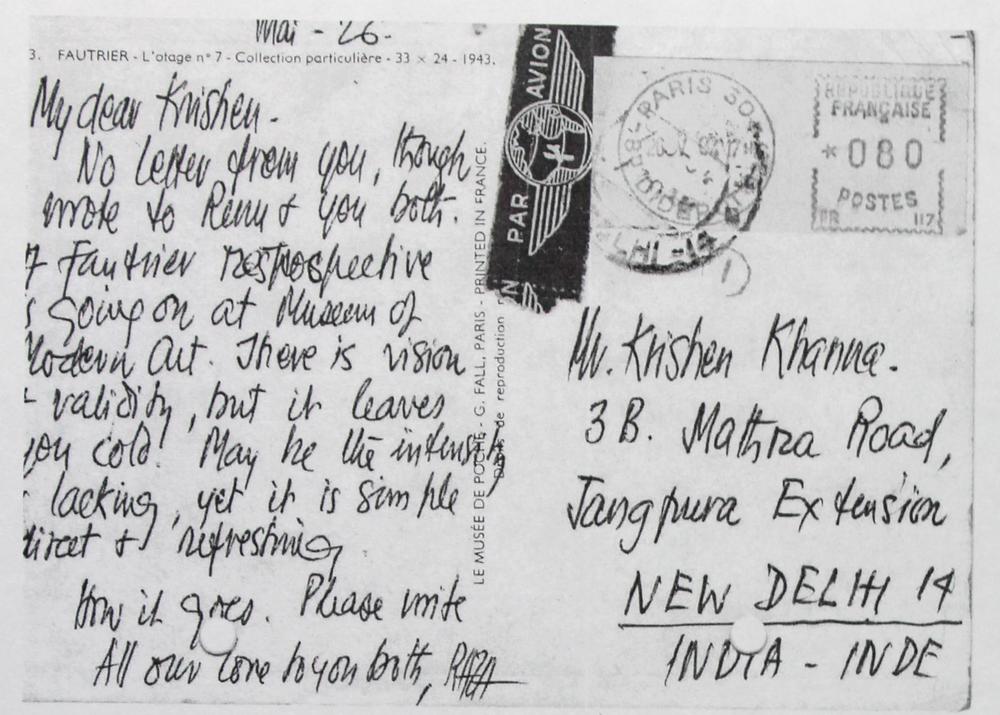 Mai - 26.
3. FAUTRIER - L'otage n° 7 - Collection particulière - 33 × 24 - 1943.
My dear Krishen.
No letter from you, though
wrote to Renu & you both.
Fautrier restrospective
is going on at Museum of
Modern Art. There is vision
+ validity, but it leaves
you cold. May be the intensity
lacking, yet it is simple
direct & refreshing
How it goes. Please write
All our love to you both, RAZA
LE MUSÉE DE POCHE - G. FALL, PARIS - PRINTED IN FRANCE.
de reproduction
PAR AVION
PARIS 30
REPUBLIQUE
FRANÇAISE
*080
POSTES
117
Mr. Krishen Khanna.
3 B. Mathra Road,
Jangpura Extension
NEW DELHI 14
INDIA - INDE